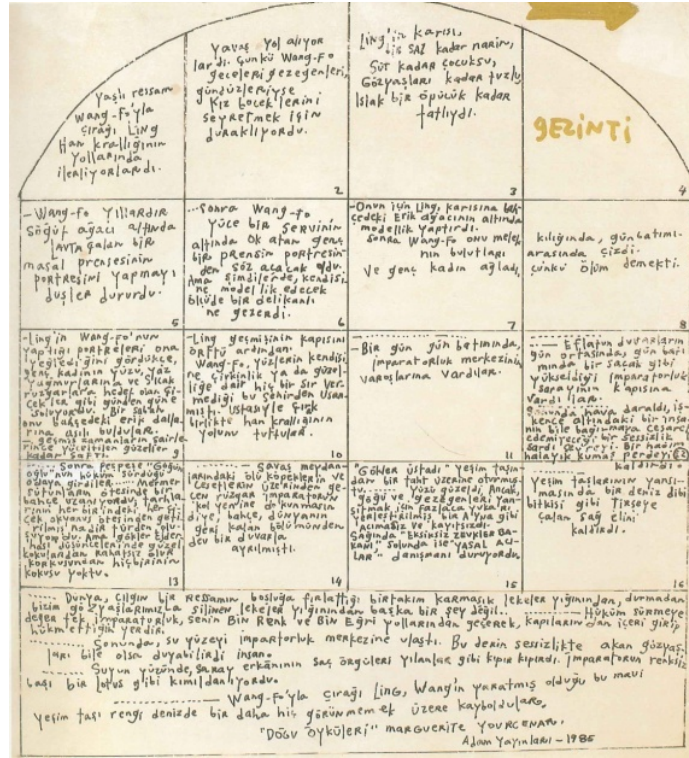 Yaşlı ressam
Wang-Fo'yla
çırağı Ling
Han krallığının
Yollarında
ilerliyorlardı.
Yavaş yol alıyor
lardı. Çünkü Wang-Fo
geceleri gezegenleri,
gündüzleriyse
Kız böceklerini
seyretmek için
duraklıyordu.
2
Ling'in karısı,
bir saz kadar narin,
Süt kadar çocuksu,
Gözyaşları kadar tuzlu,
Islak bir öpücük kadar
tatlıydı.
3
GEZİNTİ
4
-Wang-Fo Yıllardır
Söğüt ağacı altında
Lavta çalan bir
masal prensesinin
portresini yapmayı
düşler dururdu.
5
...Sonra Wang-Fo
Yüce bir servinin
altında ok atan genç
bir prensin portresin
den söz açacak oldu.
Ama şimdilerde, kendisi
ne modellik edecek
bir delikanlı
ne gezerdi.
6
-Onun için Ling, karısına bah
çedeki Erik ağacının altında
modellik yaptırdı.
Sonra Wang-Fo onu melek
nin bulutları
ve genç kadın ağladı,
7
kılığında, günbatımı-
arasında çizdi.
çünkü ölüm demekti.
8
-Ling'in Wang-Fo'nun
yaptığı portreleri ona
yeğlediğini gördükçe,
genç kadının yüzü, yaz
yağmurlarına ve sıcak
rüzgarlara hedef olan çi
çekler gibi günden güne
soluyordu. Bir sabah
onu bahçedeki erik dalla-
rına asılı buldular.
geçmiş zamanların şairle-
rince yüceltilen güzeller
kadar
9
-Ling geçmişinin kapısını
örttü ardından.
Wang-Fo, yüzlerin kendisi
ne çirkinlik ya da güzel-
liğe dair hiç bir sır ver-
mediği bu şehirden usan-
mıştı. Ustasıyla çırak
birlikte han krallığının
Yolunu tuttular.
10
-Bir gün gün batımında,
imparatorluk merkezinin
varoşlarına vardılar.
11
Eflatun duvarların
gün ortasında, gün batı
mında bir saçak gibi
yükseldiği imparatorluk
sarayının kapısına
vardılar.
hava daraldı, iş-
kence altındaki bir insa-
nın bile bağırmaya cesaret
edemiyeceği bir sessizlik
sardı çevreyi. Bir hadım
perdeyi
kaldırdı.
Sonra peşpeşe "Göğün
oğlu"nun hüküm sürdüğü
odaya girdiler. Mermer
sütunların ötesinde bir
bahçe uzanıyordu.
rının her birindeki her çi
çek okyanus ötesinden geti
rilmiş nadir türden olu-
şuyordu. Ama gökler Ejder
hası düşüncelerinde güzel
kokulardan rahatsız olur
korkusundan hiçbirinin
kokusu yoktu.
13
Savaş meydan-
larındaki ölü köpeklerin ve
cesetlerin üzerinden ge-
çen rüzgar imparatorun
kol yenine dokunmasın
diye, bahçe, dünyanın
geri kalan bölümünden
dev bir duvarla
ayrılmıştı.
14
"Gökler üstadı" yeşim taşın-
dan bir taht üzerine oturmuş-
tu. Yüzü güzeldi, Ancak,
göğü ve gezegenleri yan-
sıtmak için fazlaca yukarı
yerleştirilmiş bir Ayna gibi
Acımasız ve kayıtsızdı.
Sağında "Eksiksiz zevkler Ba-
kanı, Solunda ise "YASAL ACI-
LAR" danışmanı duruyordu.
15
yeşim taşlarının yansı-
masında bir deniz dibi
bitkisi gibi Tirşeye
çalan sağ elini
kaldırdı.
16
Dünya, çılgın bir Ressamın boşluğa fırlattığı birtakım karmaşık lekeler yığınından, durmadan
bizim gözyaşlarımızla silinen lekeler yığınından başka bir şey değil... Hüküm sürmeye
değer tek imparatorluk, senin Bin Renk ve Bin Eğri yollarından geçerek, kapılarından içeri girip
hükmettiğin yerdir.
Sonunda, su yüzeyi imparatorluk merkezine ulaştı. Bu derin sessizlikte akan gözyaş-
ları bile olsa duyabilirdi insan.
Suyun yüzünde, saray erkânının saç örgüleri yılanlar gibi kıpır kıpırdı. İmparatorun renksiz
başı bir lotus gibi kımıldanıyordu.
Wang-Fo'yla çırağı Ling, Wang'in yaratmış olduğu bu mavi
yeşim taşı rengi denizde bir daha hiç görünmemek üzere kayboldular.
"DOĞU ÖYKÜLERİ" MARGUERITE YOURCENAR.
Adam Yayınları-1985